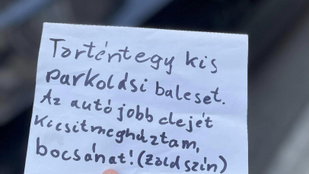 Történt egy kis
parkolási baleset.
Az autó jobb elejét
kicsit meghúztam,
bocsánat! (zöld szín)